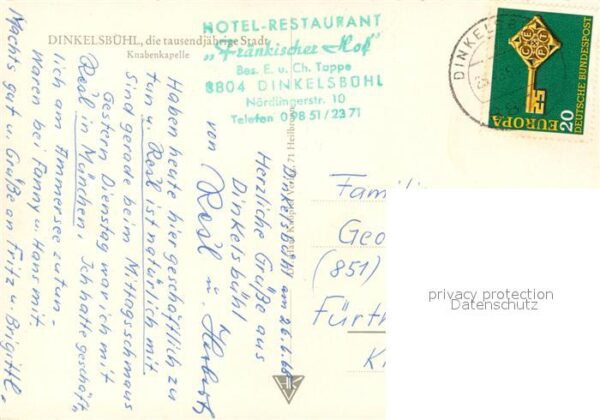 DINKELSBÜHL, die tausendjährige Stadt
Knabenkapelle
HOTEL-RESTAURANT
„Fränkischer Hof"
Bes. E. u. Ch. Tappe
8804 DINKELSBÜHL
Nördlingerstr. 10
Telefon 0 98 51 / 23 71
DEUTSCHE BUNDESPOST
EUROPA
20
CEPT
DINKELSB
Dinkelsbühl am 26.6.68
Herzliche Grüße aus
Dinkelsbühl
von Resl u. Herbert
Haben heute hier geschäftlich zu
tun u. Resl ist natürlich mit
Sind gerade beim Mittagsschmaus
Gestern Dienstag war ich mit
Resl in München. Ich hatte geschäft-
lich am Ammersee zu tun.
Waren bei Fanny u. Hans mit
Machts gut u. Grüße an Fritz u. Brigitte.
Famili
Geo
(851)
Fürth
K
Verlag
71 Heilbronn
privacy protection
Datenschutz